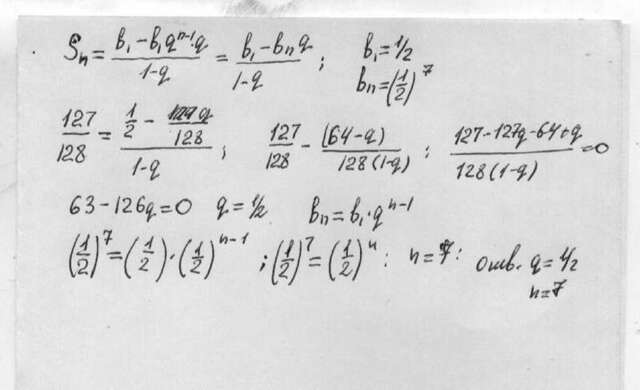 Sₙ = (b₁ - b₁qⁿ⁻¹·q)/(1-q) = (b₁ - bₙq)/(1-q) ; b₁ = 1/2
bₙ = (1/2)⁷
127/128 = (1/2 - q/128)/(1-q) ; 127/128 - (64-q)/(128(1-q)) : (127-127q-64+q)/(128(1-q)) = 0
63 - 126q = 0 q = 1/2 bₙ = b₁·qⁿ⁻¹
(1/2)⁷ = (1/2)·(1/2)ⁿ⁻¹ ; (1/2)⁷ = (1/2)ⁿ : n = 7: отв. q = 1/2
n = 7